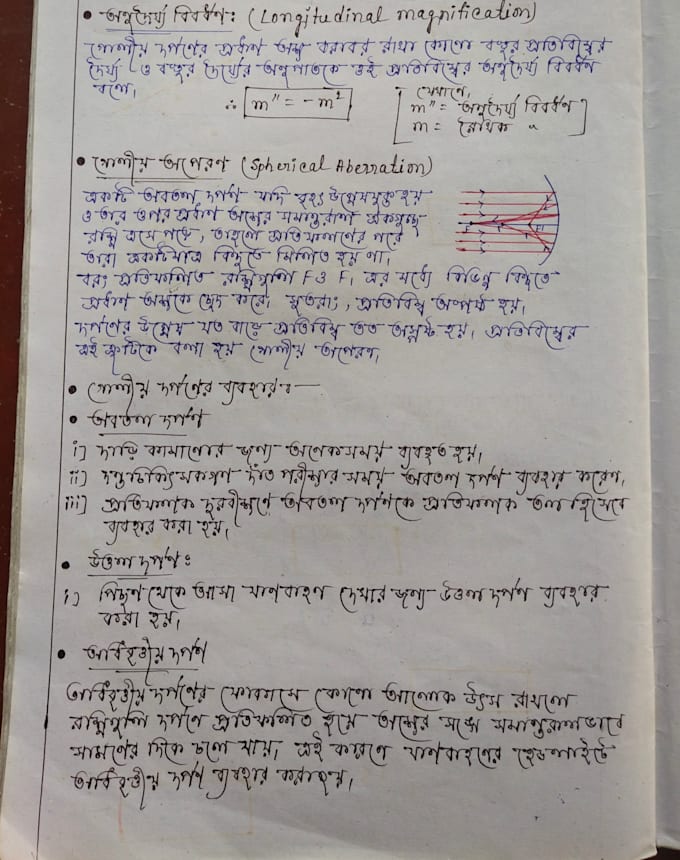 • অনুদৈর্ঘ্য বিবর্ধন : (Longitudinal magnification)
গোলীয় দর্পণের প্রধান অক্ষ বরাবর রাখা কোনো বস্তুর প্রতিবিম্বের
দৈর্ঘ্য ও বস্তুর দৈর্ঘ্যের অনুপাতকে ওই প্রতিবিম্বের অনুদৈর্ঘ্য বিবর্ধন
বলে।
∴ m" = - m²
[ যেখানে,
m" = অনুদৈর্ঘ্য বিবর্ধন
m = রৈখিক " ]
• গোলীয় অপেরণ (Spherical Aberration)
একটি অবতল দর্পণ যদি বৃহৎ উন্মেষযুক্ত হয়
ও তার ওপর প্রধান অক্ষের সমান্তরাল একগুচ্ছ
রশ্মি এসে পড়ে, তাহলে প্রতিফলনের পরে
তারা একটিমাত্র বিন্দুতে মিলিত হয় না,
বরং প্রতিফলিত রশ্মিগুলি F ও F₁ এর মধ্যে বিভিন্ন বিন্দুতে
প্রধান অক্ষকে ছেদ করে। সুতরাং, প্রতিবিম্ব অস্পষ্ট হয়।
দর্পণের উন্মেষ যত বাড়ে প্রতিবিম্ব তত অস্পষ্ট হয়। প্রতিবিম্বের
এই ত্রুটিকে বলা হয় গোলীয় অপেরণ।
• গোলীয় দর্পণের ব্যবহার :—
• অবতল দর্পণ
i) দাড়ি কামানোর জন্য অনেকসময় ব্যবহৃত হয়।
ii) দন্তচিকিৎসকগণ দাঁত পরীক্ষার সময় অবতল দর্পণ ব্যবহার করেন।
iii) প্রতিফলক দূরবীক্ষণে অবতল দর্পণকে প্রতিফলক তল হিসেবে
ব্যবহার করা হয়।
• উত্তল দর্পণ :
i) পিছন থেকে আসা যানবাহন দেখার জন্য উত্তল দর্পণ ব্যবহার
করা হয়।
• অধিবৃত্তীয় দর্পণ
অধিবৃত্তীয় দর্পণের ফোকাসে কোনো আলোক উৎস রাখলে
রশ্মিগুলি দর্পণে প্রতিফলিত হয়ে অক্ষের সঙ্গে সমান্তরালভাবে
সামনের দিকে চলে যায়। এই কারণে যানবাহনের হেডলাইটে
অধিবৃত্তীয় দর্পণ ব্যবহার করাহয়।